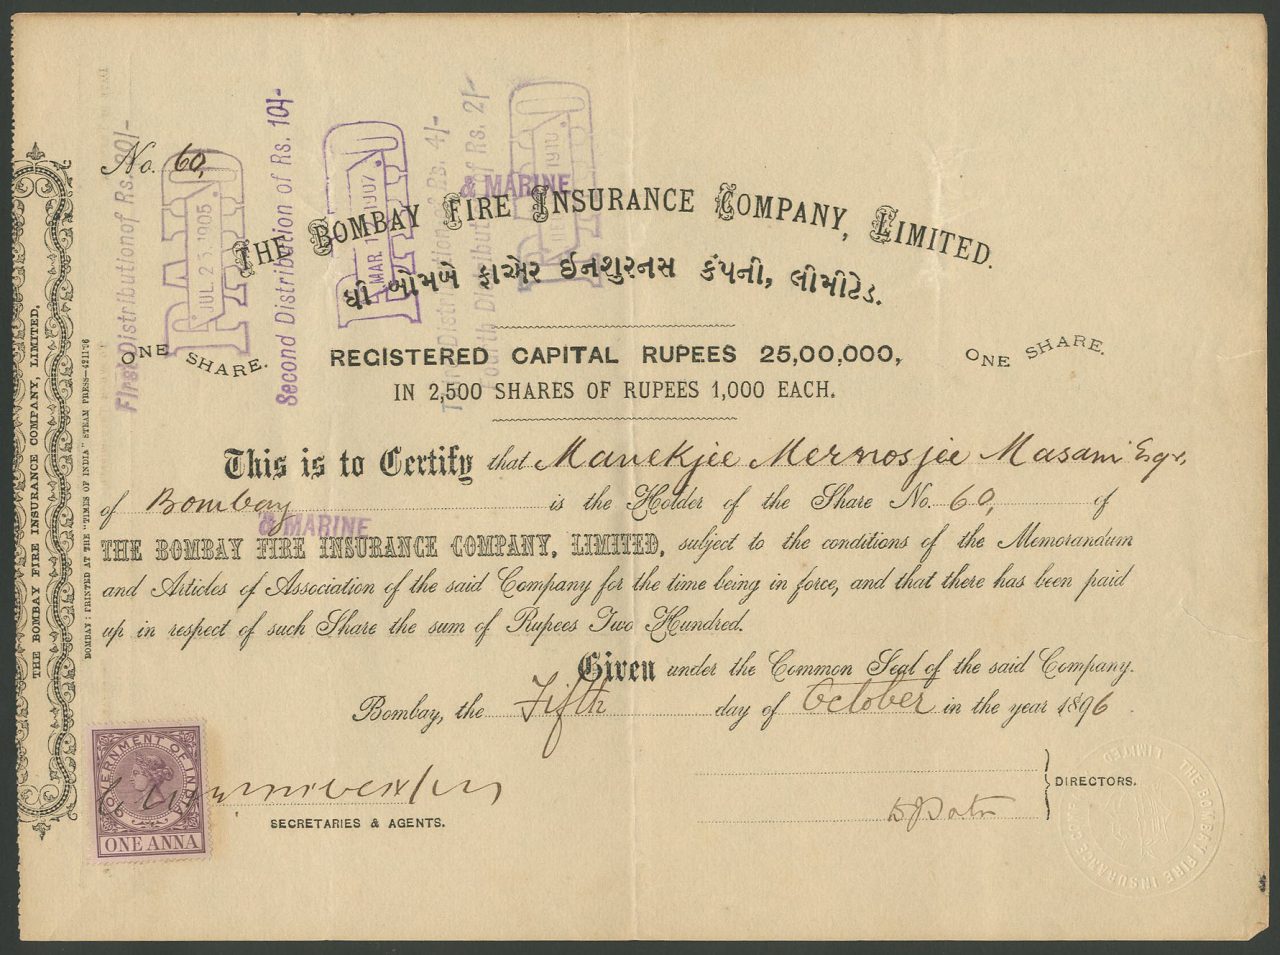 No. 60,
& MARINE
THE BOMBAY FIRE INSURANCE COMPANY, LIMITED.
ધી બોમબે ફાએર ઈનશુરનસ કંપની, લીમીટેડ.
ONE SHARE.
REGISTERED CAPITAL RUPEES 25,00,000,
ONE SHARE.
IN 2,500 SHARES OF RUPEES 1,000 EACH.
This is to Certify that Manekjee Mernosjee Masani Esqr.,
of Bombay is the Holder of the Share No. 60, of
& MARINE
THE BOMBAY FIRE INSURANCE COMPANY, LIMITED, subject to the conditions of the Memorandum
and Articles of Association of the said Company for the time being in force, and that there has been paid
up in respect of such Share the sum of Rupees Two Hundred.
Given under the Common Seal of the said Company.
Bombay, the Fifth day of October in the year 1896
DIRECTORS.
SECRETARIES & AGENTS.
GOVERNMENT OF INDIA
ONE ANNA
THE BOMBAY FIRE INSURANCE COMPANY LIMITED
THE BOMBAY FIRE INSURANCE COMPANY, LIMITED.
BOMBAY: PRINTED AT THE "TIMES OF INDIA" STEAM PRESS—4211-96
First Distribution of Rs.
PAID
JUL. 25. 1905
Second Distribution of Rs. 10/-
PAID
MAR. 1907
Distribution of Rs. 4/-
Fourth Distribution of Rs. 2/-
PAID
1910